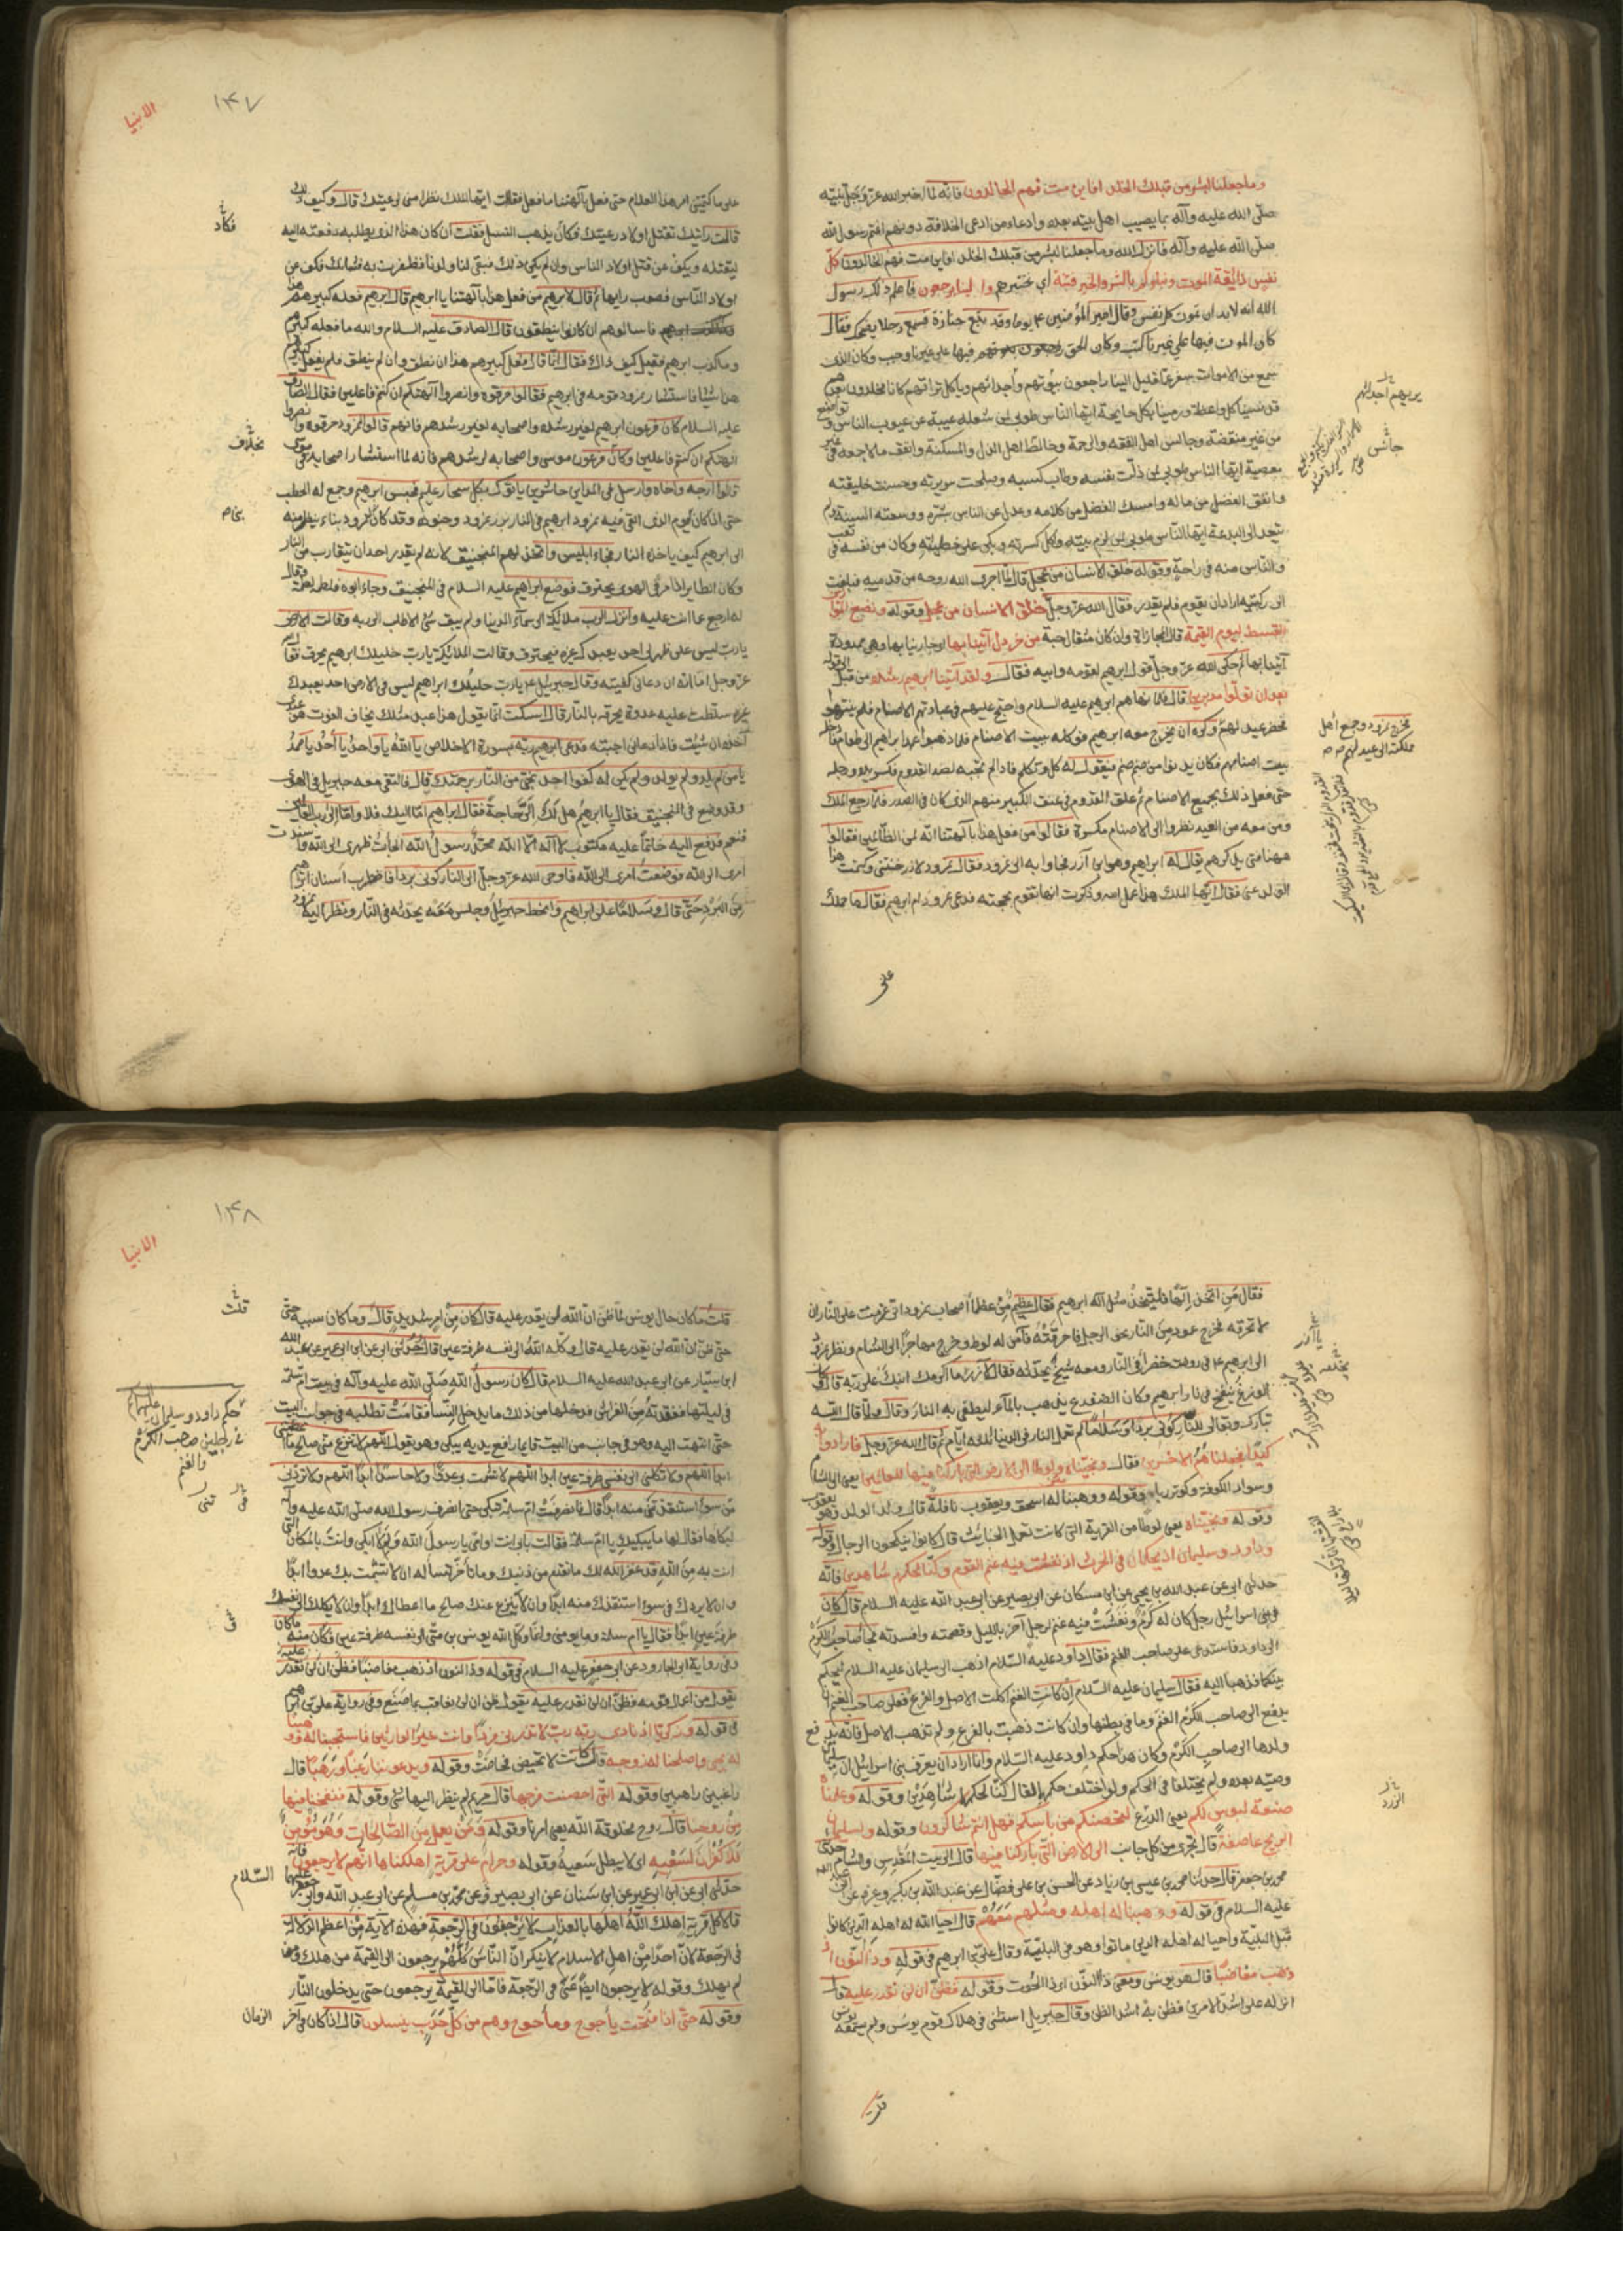 وما جعلنا لبشر من قبلك الخلد افاين مت فهم الخالدون فانه لما اخبر الله عز وجل نبيه
صلى الله عليه وآله بما يصيب اهل بيته بعده وادعاء من ادعى الخلافة دونهم اغتم رسول الله
صلى الله عليه وآله فانزل الله وما جعلنا لبشر من قبلك الخلد افاين مت فهم الخالدون كل
نفس ذائقة الموت ونبلوكم بالشر والخير فتنة أي نختبرهم والينا يرجعون فاعلم ذلك رسول
الله انه لابد ان تموت كل نفس وقال امير المؤمنين ع يوما وقد تبع جنازة فسمع رجلا يضحك فقال
كان الموت فيها على غيرنا كتب وكان الحق فيها على غيرنا وجب وكان الذى
نسمع من الاموات سفر عما قليل الينا راجعون
قد نسينا كل واعظة ورمينا بكل جايحة ايها الناس طوبى لمن شغله عيبه عن عيوب الناس
من غير منقصة وجالس اهل الفقه والرحمة وخالط اهل الذل والمسكنة وانفق مالا جمعه فى
معصية ايها الناس طوبى لمن ذلت نفسه وطاب كسبه وصلحت سريرته وحسنت خليقته
وانفق الفضل من ماله وامسك الفضل من كلامه وعدل عن الناس شره ووسعته السنة ولم
يتعد الى البدعة ايها الناس طوبى لمن لزم بيته واكل كسرته وبكى على خطيئته وكان من نفسه فى
والناس منه فى راحة وقوله خلق الانسان من عجل قال لما اجرى الله روحه من قدميه فبلغت
الى ركبتيه اراد ان يقوم فلم يقدر فقال الله عز وجل خلق الانسان من عجل وقوله ونضع الموازين
القسط ليوم القيمة قال المجازاة وان كان مثقال حبة من خردل آتينا بها اى جازينا بها وهى ممدودة
آتينا بها ثم حكى الله عز وجل قول ابرهيم لقومه وابيه فقال ولقد آتينا ابرهيم رشده من قبل الى قوله
بعد ان تولوا مدبرين قال فلما نهاهم ابرهيم عليه السلام واحتج عليهم فى عبادتهم الاصنام فلم ينتهوا
فحضر عيد لهم وكره ان يخرج معه ابرهيم فوكله ببيت الاصنام فلما ذهبوا عمد ابراهيم الى طعام فادخله
بيت اصنامهم فكان يدنوا من صنم صنم فيقول له كل وتكلم فاذا لم يجبه اخذ القدوم فكسر يده ورجله
حتى فعل ذلك بجميع الاصنام ثم علق القدوم فى عنق الكبير منهم الذى كان فى الصدر فلما رجع الملك
ومن معه من العيد نظروا الى الاصنام مكسرة فقالوا من فعل هذا بآلهتنا انه لمن الظالمين فقالوا
ههنا فتى يذكرهم يقال له ابراهيم وهو ابن آزر فجاوا به الى نمرود فقال نمرود لازر خنتنى وكتمت هذا
الولد عنى فقال ايها الملك هذا عمل امه وذكرت انها تقوم بحجته فدعى نمرود ام ابرهيم فقال ما حملك
على
جالس
يخرج نمرود وجمع أهل
مملكته الى عيد لهم
الانبيا
١٤٧
على ما كتمتنى امر هذا الغلام حتى فعل بآلهتنا ما فعل فقالت ايها الملك نظرا منى لرعيتك قال وكيف ذلك
قالت رايتك تقتل اولاد رعيتك فكان يذهب النسل فقلت ان كان هذا الذى يطلبه دفعته اليه
ليقتله ويكف عن قتل اولاد الناس وان لم يكن ذلك فبقى لنا ولدنا فظفرت به فشانك فكف عن
اولاد الناس فصوب رايها ثم قال لابرهيم من فعل هذا بآلهتنا يا ابرهيم قال ابرهيم فعله كبيرهم هذا
فاسالوهم ان كانوا ينطقون قال الصادق عليه السلام والله ما فعله كبيرهم
وما كذب ابرهيم فقيل كيف ذاك فقال انما قال فعل كبيرهم هذا ان نطق وان لم ينطق فلم يفعل كبيرهم
هذا شيئا فاستشار نمرود قومه فى ابرهيم فقالوا حرقوه وانصروا آلهتكم ان كنتم فاعلين فقال الصادق
عليه السلام كان فرعون ابرهيم لغير رشده واصحابه لغير رشدهم فانهم قالوا لنمرود حرقوه وانصروا
الهتكم ان كنتم فاعلين وكان فرعون موسى واصحابه لرشدهم فانه لما استشار اصحابه فى موسى
قالوا ارجه واخاه وارسل فى المداين حاشرين ياتوك بكل سحار عليم فحبس ابرهيم وجمع له الحطب
حتى اذا كان اليوم الذى القى فيه نمرود ابرهيم فى النار برز نمرود وجنوده وقد كان لنمرود بناء ينظر منه
الى ابرهيم كيف ياخذه النار فجاء ابليس واتخذ لهم المنجنيق لانه لم يقدر احد ان يتقارب من النار
وكان الطاير اذا مر فى الهوى يحترق فوضع ابراهيم عليه السلام فى المنجنيق وجاء ابوه فلطمه لطمة وقال
له ارجع عما انت عليه وانزل الرب ملائكة الى سماء الدنيا ولم يبق شئ الا طلب الى ربه وقالت الارض
يا رب ليس على ظهرى احد يعبدك غيره فيحترق وقالت الملائكة يا رب خليلك ابرهيم يحرق فقال الله
عز وجل اما انه ان دعانى كفيته وقال جبرئيل ع يا رب خليلك ابراهيم ليس فى الارض احد يعبدك
غيره سلطت عليه عدوه يحرقه بالنار قال اسكت انما يقول هذا عبد مثلك يخاف الفوت هو عبدى
آخذه ان شئت فاذا دعانى اجبته فدعى ابرهيم ربه بسورة الاخلاص يا الله يا واحد يا أحد يا صمد
يا من لم يلد ولم يولد ولم يكن له كفوا احد نجنى من النار برحمتك قال فالتقى معه جبريل فى الهوى
وقد وضع فى المنجنيق فقال يا ابرهيم هل لك الى حاجة فقال ابراهيم اما اليك فلا واما الى رب العالمين
فنعم فدفع اليه خاتما عليه مكتوب لا اله الا الله محمد رسول الله الجأت ظهرى الى الله واسندت
امرى الى الله فوضت امرى الى الله فاوحى الله عز وجل الى النار كونى بردا فاضطرب اسنان ابرهيم
من البرد حتى قال وسلاما على ابراهيم وانحط جبرئيل وجلس معه يحدثه فى النار ونظر اليه نمرود
فكان
بخلاف
فقال من اتخذ إلها فليتخذ مثل اله ابرهيم فقال عظيم من عظماء اصحاب نمرود انى عزمت على النار ان
لا تحرقه فخرج عمود من النار نحو الرجل فاحرقته فآمن له لوط وخرج مهاجرا الى الشام ونظر نمرود
الى ابرهيم ع فى روضة خضرا فى النار ومعه شيخ يحدثه فقال لآزر ما اكرم ابنك على ربه قال وكان
الوزغ ينفخ فى نار ابرهيم وكان الضفدع يذهب بالماء ليطفى به النار وقال ولما قال الله
تبارك وتعالى للنار كونى بردا وسلاما لم تعمل النار فى الدنيا ثلثة ايام ثم قال الله عز وجل فارادوا به
كيدا فجعلناهم الاخسرين فقال ونجيناه ولوطا الى الارض التى باركنا فيها للعالمين يعنى الى الشام
وسواد الكوفة وكوثى ربا وقوله ووهبنا له اسحق ويعقوب نافلة قال ولد الولد وهو يعقوب
وقوله ونجيناه يعنى لوطا من القرية التى كانت تعمل الخبائث قال كانوا ينكحون الرجال وقوله
وداود وسليمان اذ يحكمان فى الحرث اذ نفشت فيه غنم القوم وكنا لحكمهم شاهدين فانه
حدثنى ابى عن عبد الله بن يحيى عن ابن مسكان عن ابى بصير عن ابى عبد الله عليه السلام قال كان
فى بنى اسرائيل رجل كان له كرم ونفشت فيه غنم لرجل آخر بالليل وقضمته وافسدته فجاء صاحب الكرم
الى داود فاستدعى على صاحب الغنم فقال داود عليه السلام اذهب الى سليمان عليه السلام ليحكم
بينكما فذهبا اليه فقال سليمان عليه السلام إن كانت الغنم اكلت الاصل والفرع فعلى صاحب الغنم ان
يدفع الى صاحب الكرم الغنم وما فى بطنها وان كانت ذهبت بالفرع ولم تذهب الاصل فانه يدفع
ولدها الى صاحب الكرم وكان هذا حكم داود عليه السلام وانما اراد ان يعرف بنى اسرائيل ان سليمان
وصيه بعده ولم يختلفا فى الحكم ولو اختلف حكمهما لقال كنا لحكمهما شاهدين وقوله وعلمناه
صنعة لبوس لكم يعنى الدرع لتحصنكم من باسكم فهل انتم شاكرون وقوله ولسليمان
الريح عاصفة قال تجرى من كل جانب الى الارض التى باركنا فيها قال الى بيت المقدس والشام حدثنا
محمد بن جعفر قال حدثنا محمد بن عيسى بن زياد عن الحسن بن على فضال عن عبد الله بن بكير وغيره عن ابى عبد الله
عليه السلام فى قوله ووهبنا له اهله ومثلهم معهم قال احيا الله له اهله الذين كانوا
قبل البلية واحيا له اهله الذين ماتوا وهو فى البلية وقال على بن ابرهيم فى قوله وذا النون اذ
ذهب مغاضبا قال هو يونس ومعنى ذا النون اى ذا الحوت وقوله فظن ان لن نقدر عليه قال
انزله على اشد الامرين فظن به اشد الظن وقال جبريل استثنى فى هلاك قوم يونس ولم يسمعه يونس
قلت
الزرد
الانبيا
١٤٨
قلت ما كان حال يونس لما ظن ان الله لن يقدر عليه قال كان من امر شديد قال وما كان سببه حتى
حتى ظن ان الله لن يقدر عليه قال وكله الله الى نفسه طرفة عين قال حدثنى ابى عن ابن ابى عمير عن عبد الله
ابن سيار عن ابى عبد الله عليه السلام قال كان رسول الله صلى الله عليه وآله فى بيت ام سلمة
فى ليلتها ففقدته من الفراش فدخلها من ذلك ما يدخل النسا فقامت تطلبه فى جوانب البيت
حتى انتهت اليه وهو فى جانب من البيت قايما رافع يديه يبكى وهو يقول اللهم لا تنزع منى صالح ما اعطيتنى
ابدا اللهم ولا تكلنى الى نفسى طرفة عين ابدا اللهم لا تشمت بى عدوا ولا حاسدا ابدا اللهم ولا تردنى
فى سوء استنقذتنى منه ابدا قال فانصرفت ام سلمة تبكى حتى انصرف رسول الله صلى الله عليه وآله
لبكاها فقال لها ما يبكيك يا ام سلمة فقالت بابى انت وامى يا رسول الله ولم لا ابكى وانت بالمكان الذى
انت به من الله قد غفر الله لك ما تقدم من ذنبك وما تأخر تسأله ان لا يشمت بك عدوا ابدا
وان لا يردك فى سوء استنقذك منه ابدا وان لا ينزع عنك صالح ما اعطاك ابدا وان لا يكلك الى نفسك
طرفة عين ابدا فقال يا ام سلمة وما يومننى وانما وكل الله يونس بن متى الى نفسه طرفة عين فكان منه ما كان
وفى رواية ابى الجارود عن ابى جعفر عليه السلام فى قوله وذا النون اذ ذهب مغاضبا فظن ان لن نقدر عليه
يقول من اعمال قومه فظن ان لن نقدر عليه يقول ظن ان لن يعاقب بما صنع وفى رواية على بن ابرهيم
فى قوله وزكريا اذ نادى ربه رب لا تذرنى فردا وانت خير الوارثين فاستجبنا له ووهبنا
له يحيى واصلحنا له زوجه قال كانت لا تحيض فحاضت وقوله ويدعوننا رغبا ورهبا قال
راغبين راهبين وقوله التى احصنت فرجها قال مريم لم ينظر اليها شئ وقوله فنفخنا فيها
من روحنا قال روح مخلوقة الله يعنى امرنا وقوله فمن يعمل من الصالحات وهو مؤمن
فلا كفران لسعيه اى لا يبطل سعيه وقوله وحرام على قرية اهلكناها انهم لا يرجعون فانه
حدثنى ابى عن ابن ابى عمير عن ابن سنان عن ابى بصير وعن محمد بن مسلم عن ابى عبد الله وابى جعفر عليهما السلام
قالا كل قرية اهلك الله اهلها بالعذاب لا يرجعون فى الرجعة فهذه الآية من اعظم الدلالة
فى الرجعة لان احدا من اهل الاسلام لا ينكر ان الناس كلهم يرجعون الى القيمة من هلك ومن
لم يهلك وقوله لا يرجعون ايضا عنى فى الرجعة فاما الى القيمة يرجعون حتى يدخلون النار
وقوله حتى اذا فتحت يأجوج ومأجوج وهم من كل حدب ينسلون قال اذا كان فى آخر الزمان
قلت
حكم داود وسليمان عليهما
فى رجلين صاحب الكرم
والغنم